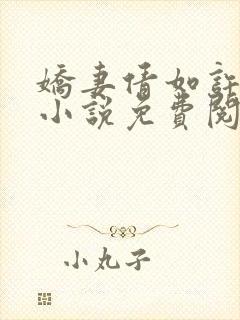 嬌妻情如許
小說免費閱
小丸子